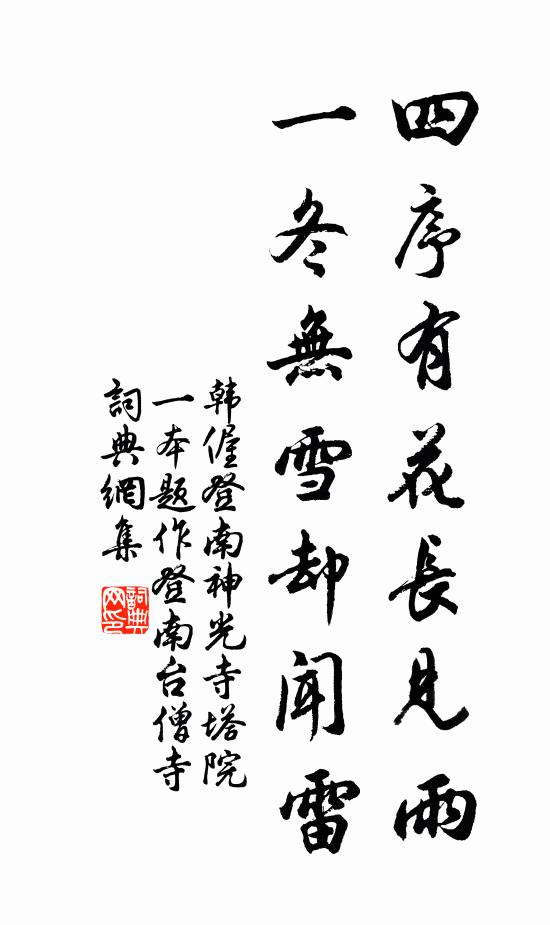 四序有花長見雨
一冬無雪却聞雷
韩偓登南神光寺塔院
一本题作登南台僧寺
詞典網集
詞典
网印